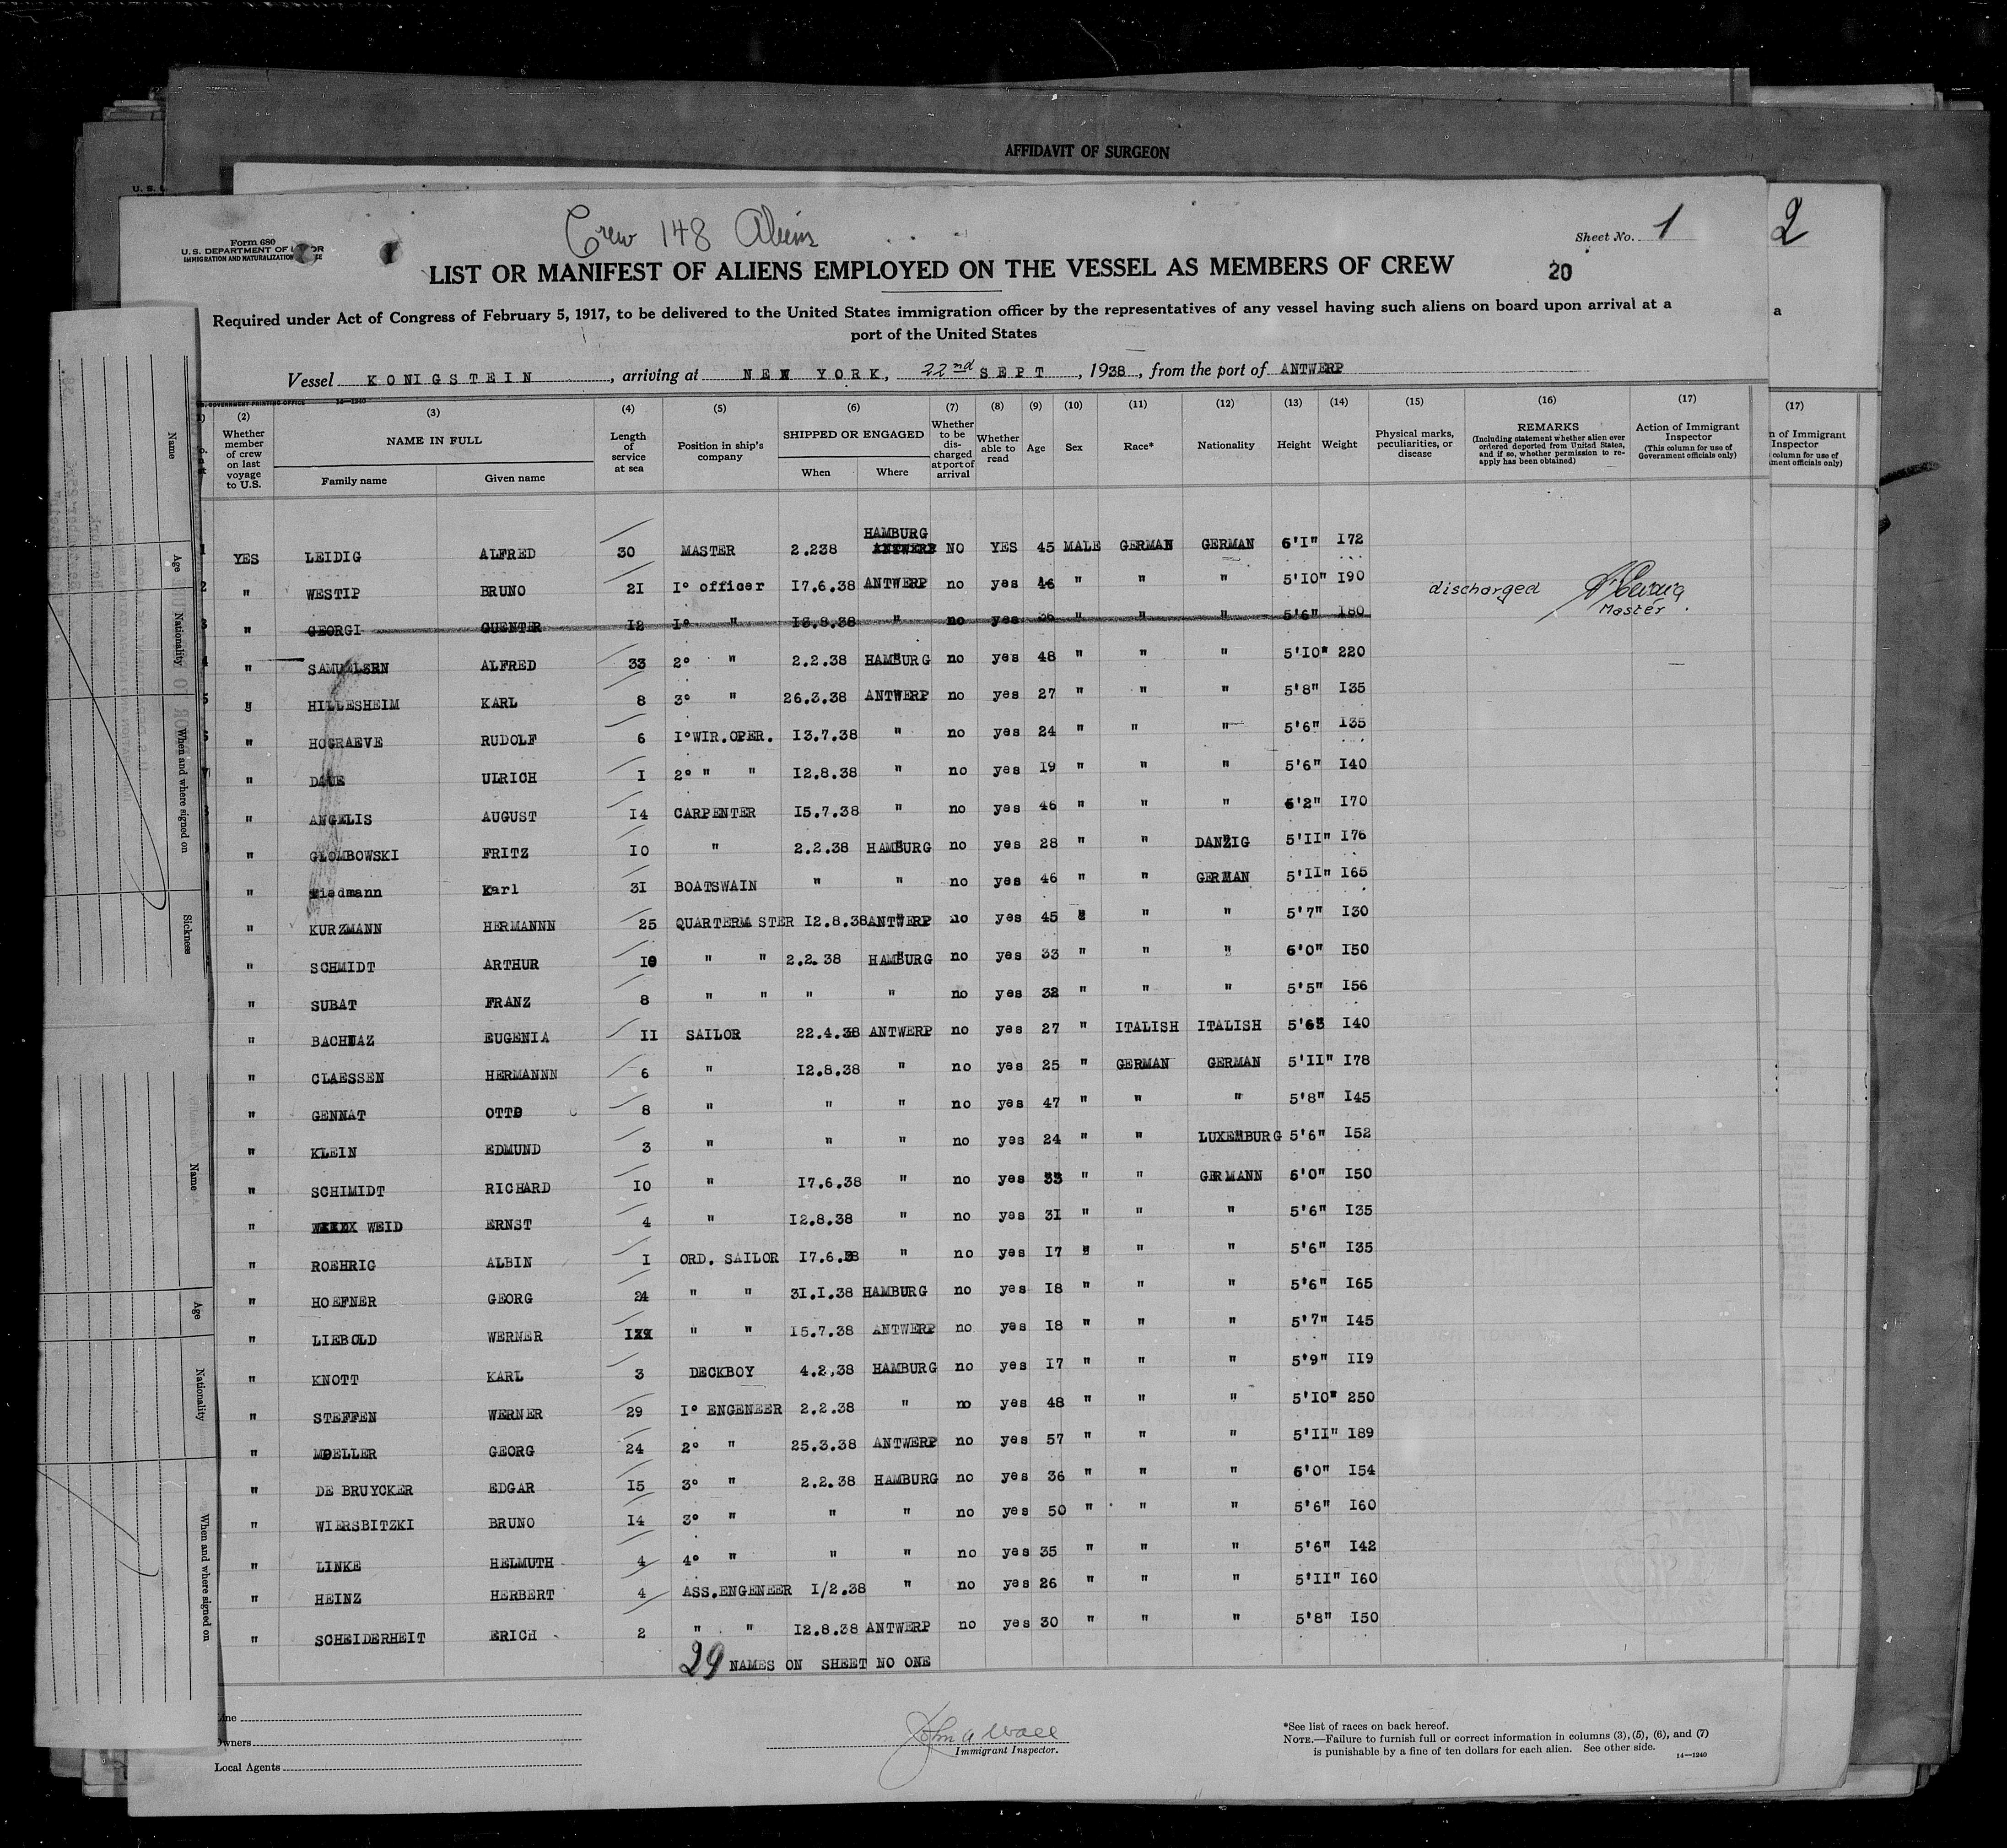 AFFIDAVIT OF SURGEON
2
Crew 148 Aliens
Form 680
U. S. DEPARTMENT OF
IMMIGRATION AND NATURALIZATION
Sheet No. 1
LIST OR MANIFEST OF ALIENS EMPLOYED ON THE VESSEL AS MEMBERS OF CREW
20
Required under Act of Congress of February 5, 1917, to be delivered to the United States immigration officer by the representatives of any vessel having such aliens on board upon arrival at a
port of the United States
Vessel KONIGSTEIN, arriving at NEW YORK, 22nd SEPT, 1938, from the port of ANTWERP
(2) (3) (4) (5) (6) (7) (8) (9) (10) (11) (12) (13) (14) (15) (16) (17)
Whether member of crew on last voyage to U.S.
NAME IN FULL
Family name Given name
Length of service at sea
Position in ship's company
SHIPPED OR ENGAGED
When Where
Whether to be discharged at port of arrival
Whether able to read
Age Sex Race* Nationality Height Weight
Physical marks, peculiarities, or disease
REMARKS
(Including statement whether alien ever ordered deported from United States, and if so, whether permission to reapply has been obtained)
Action of Immigrant Inspector
(This column for use of Government officials only)
1 YES LEIDIG ALFRED 30 MASTER 2.238 HAMBURG ANTWERP NO YES 45 MALE GERMAN GERMAN 6'I" I72
2 " WESTIP BRUNO 2I I° officer I7.6.38 ANTWERP no yes 46 " " " 5'IO" I90 discharged
Master
3 " GEORGI GUENTER I2 I° " I8.8.38 " no yes 36 " " " 5'6" I80
4 " SAMUELSEN ALFRED 33 2° " 2.2.38 HAMBURG no yes 48 " " " 5'IO" 220
5 " HILLESHEIM KARL 8 3° " 26.3.38 ANTWERP no yes 27 " " " 5'8" I35
6 " HOGRAEVE RUDOLF 6 I°WIR.OPER. I3.7.38 " no yes 24 " " " 5'6" I35
7 " DAUE ULRICH I 2° " " I2.8.38 " no yes I9 " " " 5'6" I40
" ANGELIS AUGUST I4 CARPENTER I5.7.38 " no yes 46 " " " 6'2" I70
" GLOMBOWSKI FRITZ IO " 2.2.38 HAMBURG no yes 28 " " DANZIG 5'II" I76
" Tiedmann Karl 3I BOATSWAIN " " no yes 46 " " GERMAN 5'II" I65
" KURZMANN HERMANNN 25 QUARTERMA STER I2.8.38 ANTWERP no yes 45 " " " 5'7" I30
" SCHMIDT ARTHUR I0 " " 2.2.38 HAMBURG no yes 33 " " " 6'0" I50
" SUBAT FRANZ 8 " " " " no yes 32 " " " 5'5" I56
" BACHNAZ EUGENIA II SAILOR 22.4.38 ANTWERP no yes 27 " ITALISH ITALISH 5'6" I40
" CLAESSEN HERMANNN 6 " I2.8.38 " no yes 25 " GERMAN GERMAN 5'II" I78
" GENNAT OTTO 8 " " " no yes 47 " " " 5'8" I45
" KLEIN EDMUND 3 " " " no yes 24 " " LUXEMBURG 5'6" I52
" SCHIMIDT RICHARD IO " I7.6.38 " no yes 33 " " GERMANN 6'0" I50
" WEID ERNST 4 " I2.8.38 " no yes 3I " " " 5'6" I35
" ROEHRIG ALBIN I ORD. SAILOR I7.6.38 " no yes I7 " " " 5'6" I35
" HOEFNER GEORG 24 " " 3I.I.38 HAMBURG no yes I8 " " " 5'6" I65
" LIEBOLD WERNER " " I5.7.38 ANTWERP no yes I8 " " " 5'7" I45
" KNOTT KARL 3 DECKBOY 4.2.38 HAMBURG no yes I7 " " " 5'9" II9
" STEFFEN WERNER 29 I° ENGENEER 2.2.38 " no yes 48 " " " 5'IO" 250
" MOELLER GEORG 24 2° " 25.3.38 ANTWERP no yes 57 " " " 5'II" I89
" DE BRUYCKER EDGAR I5 3° " 2.2.38 HAMBURG no yes 36 " " " 6'0" I54
" WIERSBITZKI BRUNO I4 3° " " " no yes 50 " " " 5'6" I60
" LINKE HELMUTH 4 4° " " " no yes 35 " " " 5'6" I42
" HEINZ HERBERT 4 ASS.ENGENEER I/2.38 " no yes 26 " " " 5'II" I60
" SCHEIDERHEIT ERICH 2 " " I2.8.38 ANTWERP no yes 30 " " " 5'8" I50
29 NAMES ON SHEET NO ONE
Line
Owners
Local Agents
John A Wall
Immigrant Inspector.
*See list of races on back hereof.
NOTE.—Failure to furnish full or correct information in columns (3), (5), (6), and (7)
is punishable by a fine of ten dollars for each alien. See other side.
14—1240
Name
Age
Nationality
When and where signed on
Sickness
Name
Age
Nationality
When and where signed on
a
(17)
n of Immigrant
Inspector
column for use of
ment officials only)